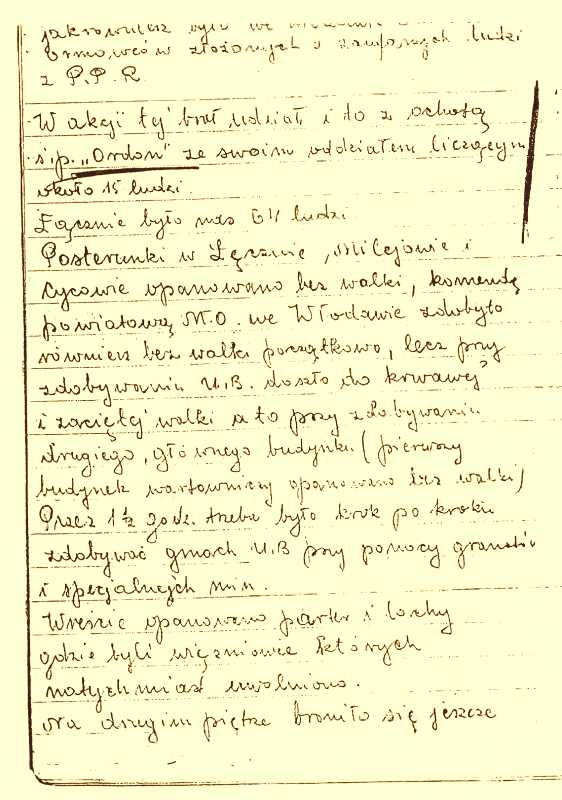 jakrównież było we
Ormowców złożonych z zaufanych ludzi
z P.P.R
W akcji tej brał udział i to z ochotą
ś.p. „Ordon" ze swoim oddziałem liczącym
około 15 ludzi.
Łącznie było nas 64 ludzi
Posterunki w Łęcznie, Milejowie i
Cycowie opanowano bez walki, komendę
powiatową M.O. we Włodawie zdobyto
równierz bez walki początkowo, lecz przy
zdobywaniu U.B. doszło do krwawej
i zaciętej walki a to przy zdobywaniu
drugiego, głównego budynku (pierwszy
budynek wartowniczy opanowano bez walki)
Przez 1½ godz. trzeba było krok po kroku
zdobywać gmach U.B przy pomocy granatów
i specjalnejch min.
Wreście opanowano parter i lochy
gdzie byli więzniowie których
natychmiast uwolniono.
Na drugim piętrze broniło się jeszcze